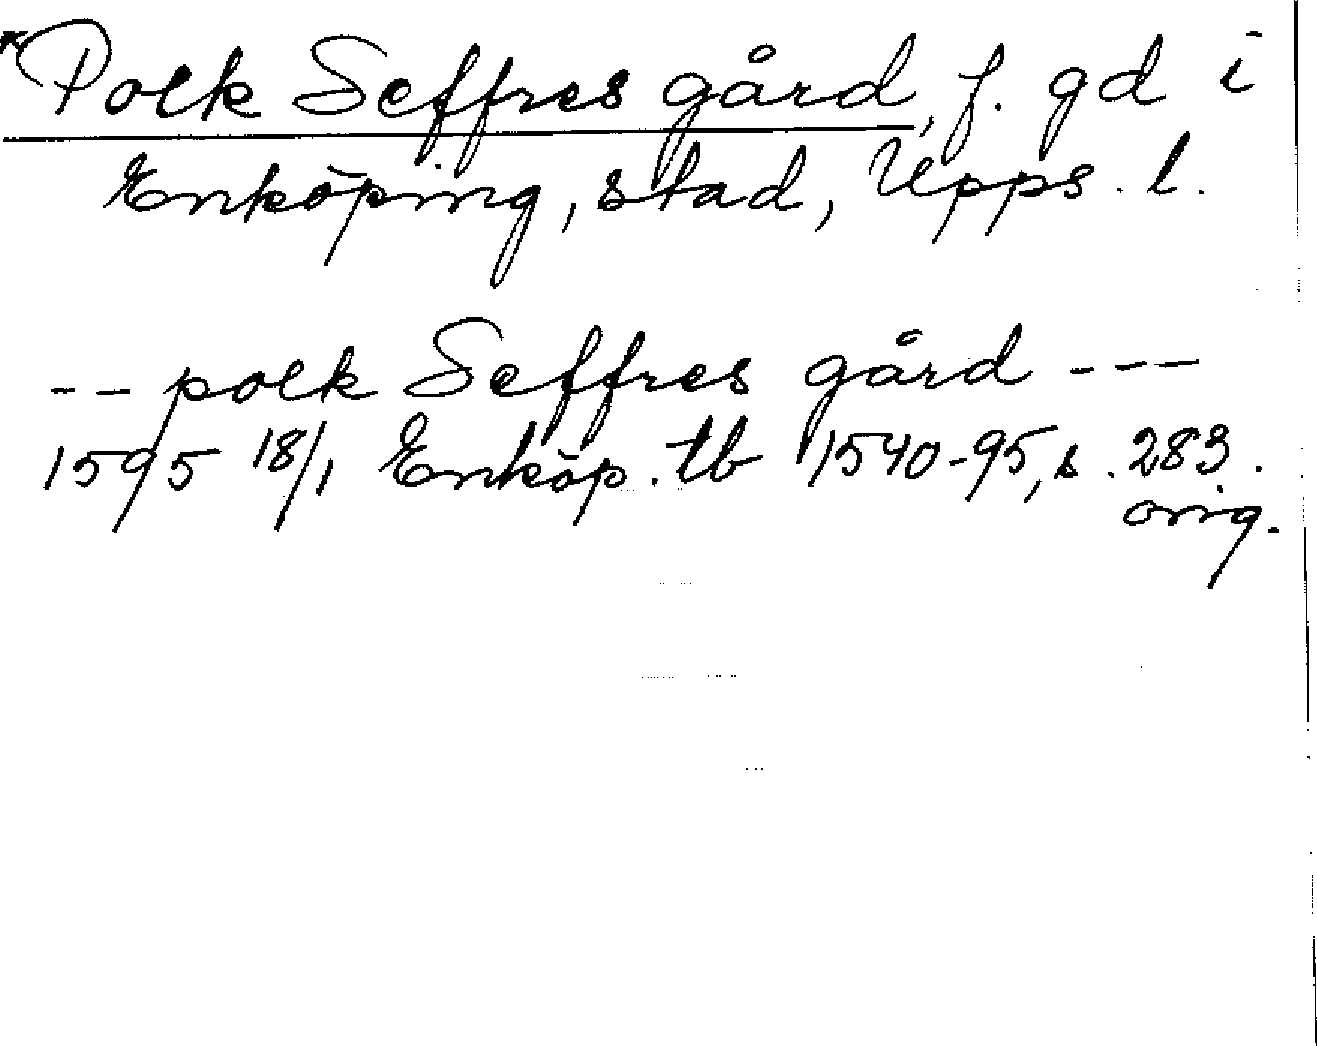 *Polk Seffres gård, f. gd i
Enköping, stad, Upps. l.
-- polk Seffres gård ---
1595 18/1 Enköp. tb 1540-95, s. 283.
orig.